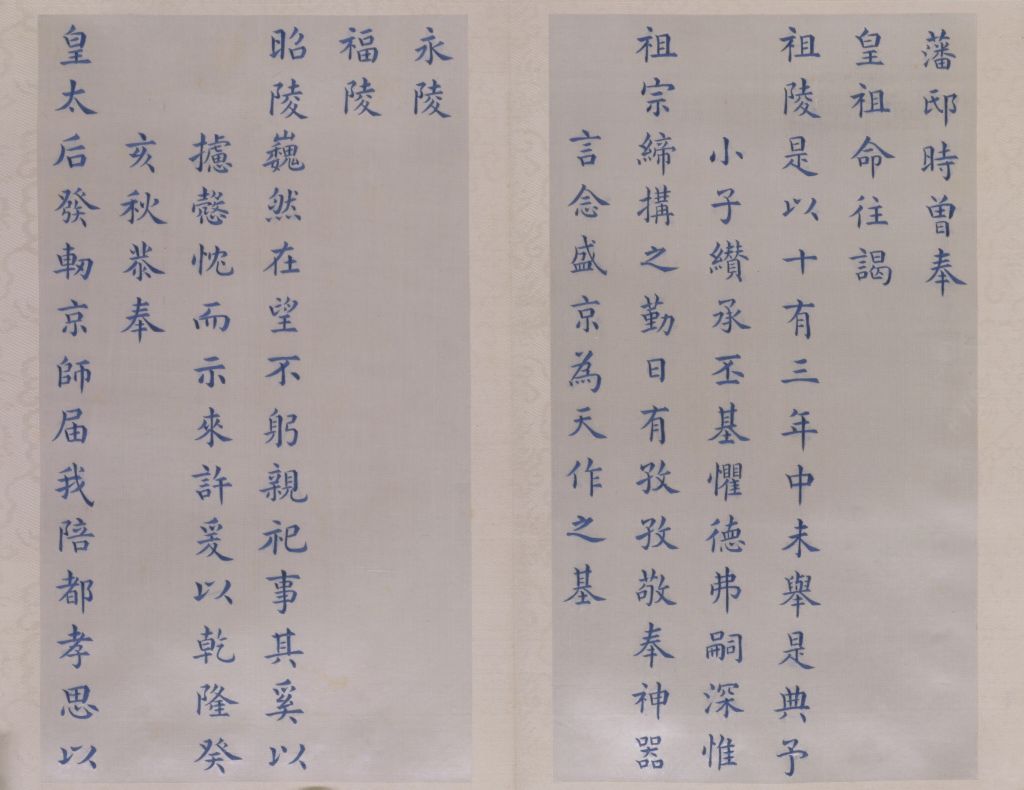 藩邸時曽奉
皇祖命往謁
祖陵是以十有三年中未舉是典予
小子纘承丕基懼德弗嗣深惟
祖宗締搆之勤日有孜孜敬奉神器
言念盛京為天作之基
永陵
福陵
昭陵巍然在望不躬親祀事其奚以
攄慤忱而示來許爰以乾隆癸
亥秋恭奉
皇太后發軔京師届我陪都孝思以